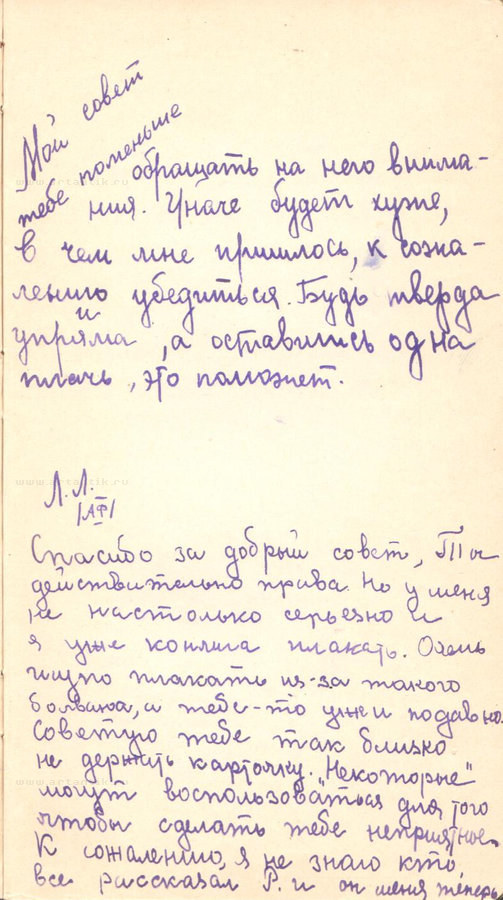 Мой совет
тебе поменьше
обращать на него внима-
ния. Иначе будет хуже,
в чем мне пришлось, к сожа-
лению убедиться. Будь тверда
и
упряма, а оставшись одна
плачь, это поможет.
Л.Л.
/АФ/
Спасибо за добрый совет, Ты
действительно права. Но у меня
не настолько серьезно и
я уже кончила плакать. Очень
нужно плакать из-за такого
болвана, а тебе-то уж и подавно.
Советую тебе так близко
не держать карточку. "Некоторые"
могут воспользоваться для того
чтобы сделать тебе неприятное.
К сожалению, я не знаю кто,
все рассказал Р. и он меня теперь
www.artantik.ru
www.artantik.ru
www.artantik.ru